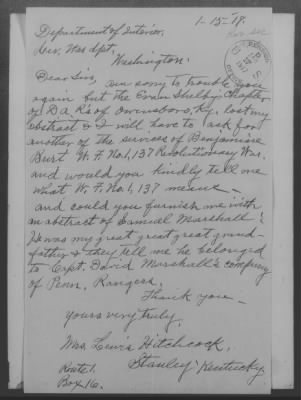 1-15-19.
Department of Interior,
Rev. War Dpt,
Washington.
Dear Sirs,
am sorry to trouble you
again but the Evan Shelby Chapter
of D A R's of Owensboro, Ky. lost my
abstract & I will have to ask for
another of the services of Benjamine
Burt W. F. No. 1,137 Revolutionary War.
and would you kindly tell me
what W. F. No. 1,137 means —
and could you furnish me with
an abstract of Emuel Marshall?
He was my great great great grand-
father & they tell me he belonged
to Capt. David Marshall's company
of Penn, Rangers.
Thank you —
yours very truly,
Mrs Lewis Hitchcock,
Stanley Kentucky
Route 1.
Box 16.